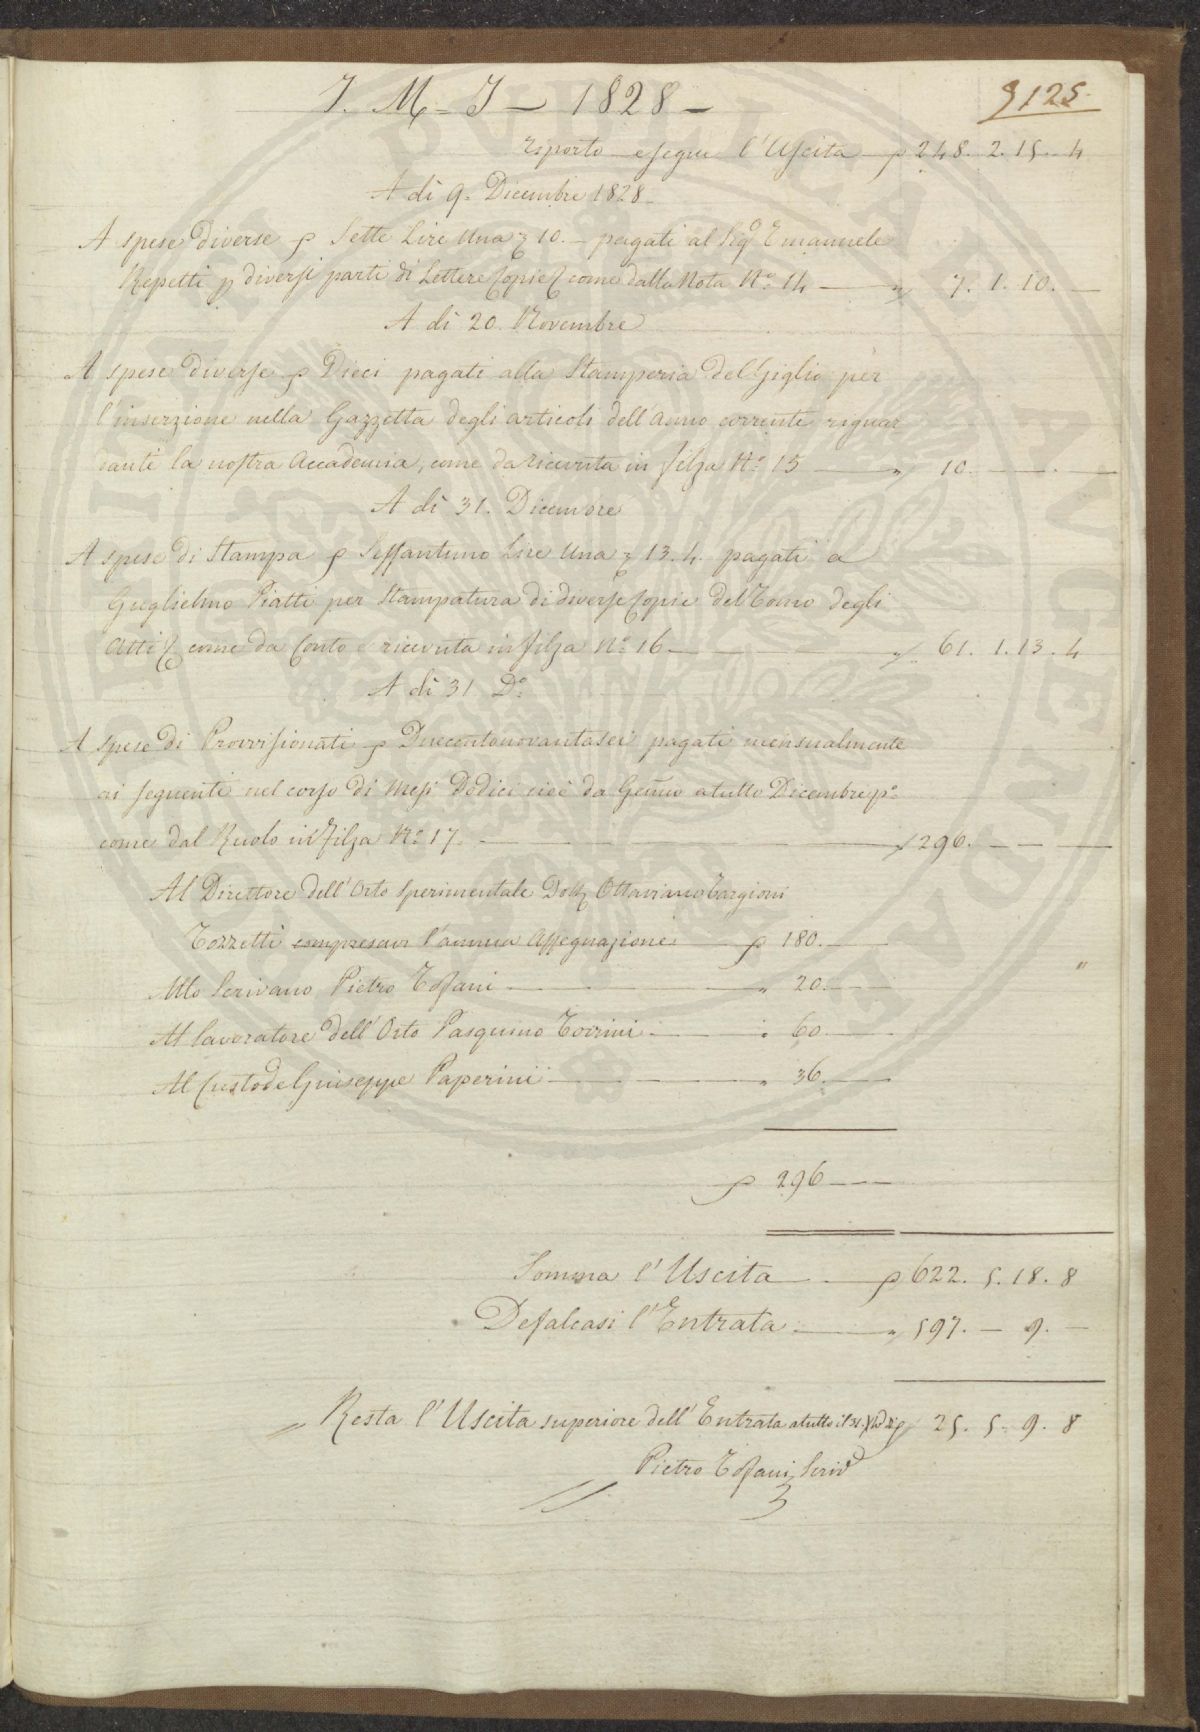 J. M = J — 1828 —
9125
riporto e segue l'Uscita 248. 2. 15. 4
A dì 9. Decembre 1828
A spese diverse Sette Lire Una 10. — pagati al Sigr Emanuele
Repetti p diversi parti di Lettere Copie come dalla Nota No. 14 — 7. 1. 10. —
A dì 20. Novembre
A spese diverse Dieci pagati alla Stamperia del Giglio per
l'inserzione nella Gazzetta degli articoli dell'Anno corrente riguar
danti la nostra Accademia, come da ricevuta in filza No. 15 — 10. — —
A dì 31. Dicembre
A spese di Stampa Sessantuno Lire Una 13. 4. pagati a
Guglielmo Piatti per Stampatura di diverse Copie del Tomo degli
Atti come da Conto e ricevuta in filza No. 16 — 61. 1. 13. 4
A dì 31 Do.
A spese di Provvisionati Duecentonovantasei pagati mensualmente
ai seguenti nel corso di Mesi Dodici cioè da Genno a tutto Dicembre po.
come dal Ruolo in Filza No. 17. — 296. — — —
Al Direttore dell'Orto Sperimentale Dottr Ottaviano Targioni
Tozzetti compresavi l'annua Assegnazione 180. —
Allo Scrivano Pietro Tofani — 20. —
Al lavoratore dell'Orto Pasquino Torrini — 60. —
Al Custode Giuseppe Paperini — 36. —
296 —
Somma l'Uscita — 622. 5. 18. 8
Defalcasi l'Entrata — 597. — 9. —
Resta l'Uscita superiore dell'Entrata a tutto il 31. 25. 5. 9. 8
Pietro Tofani Scrivo